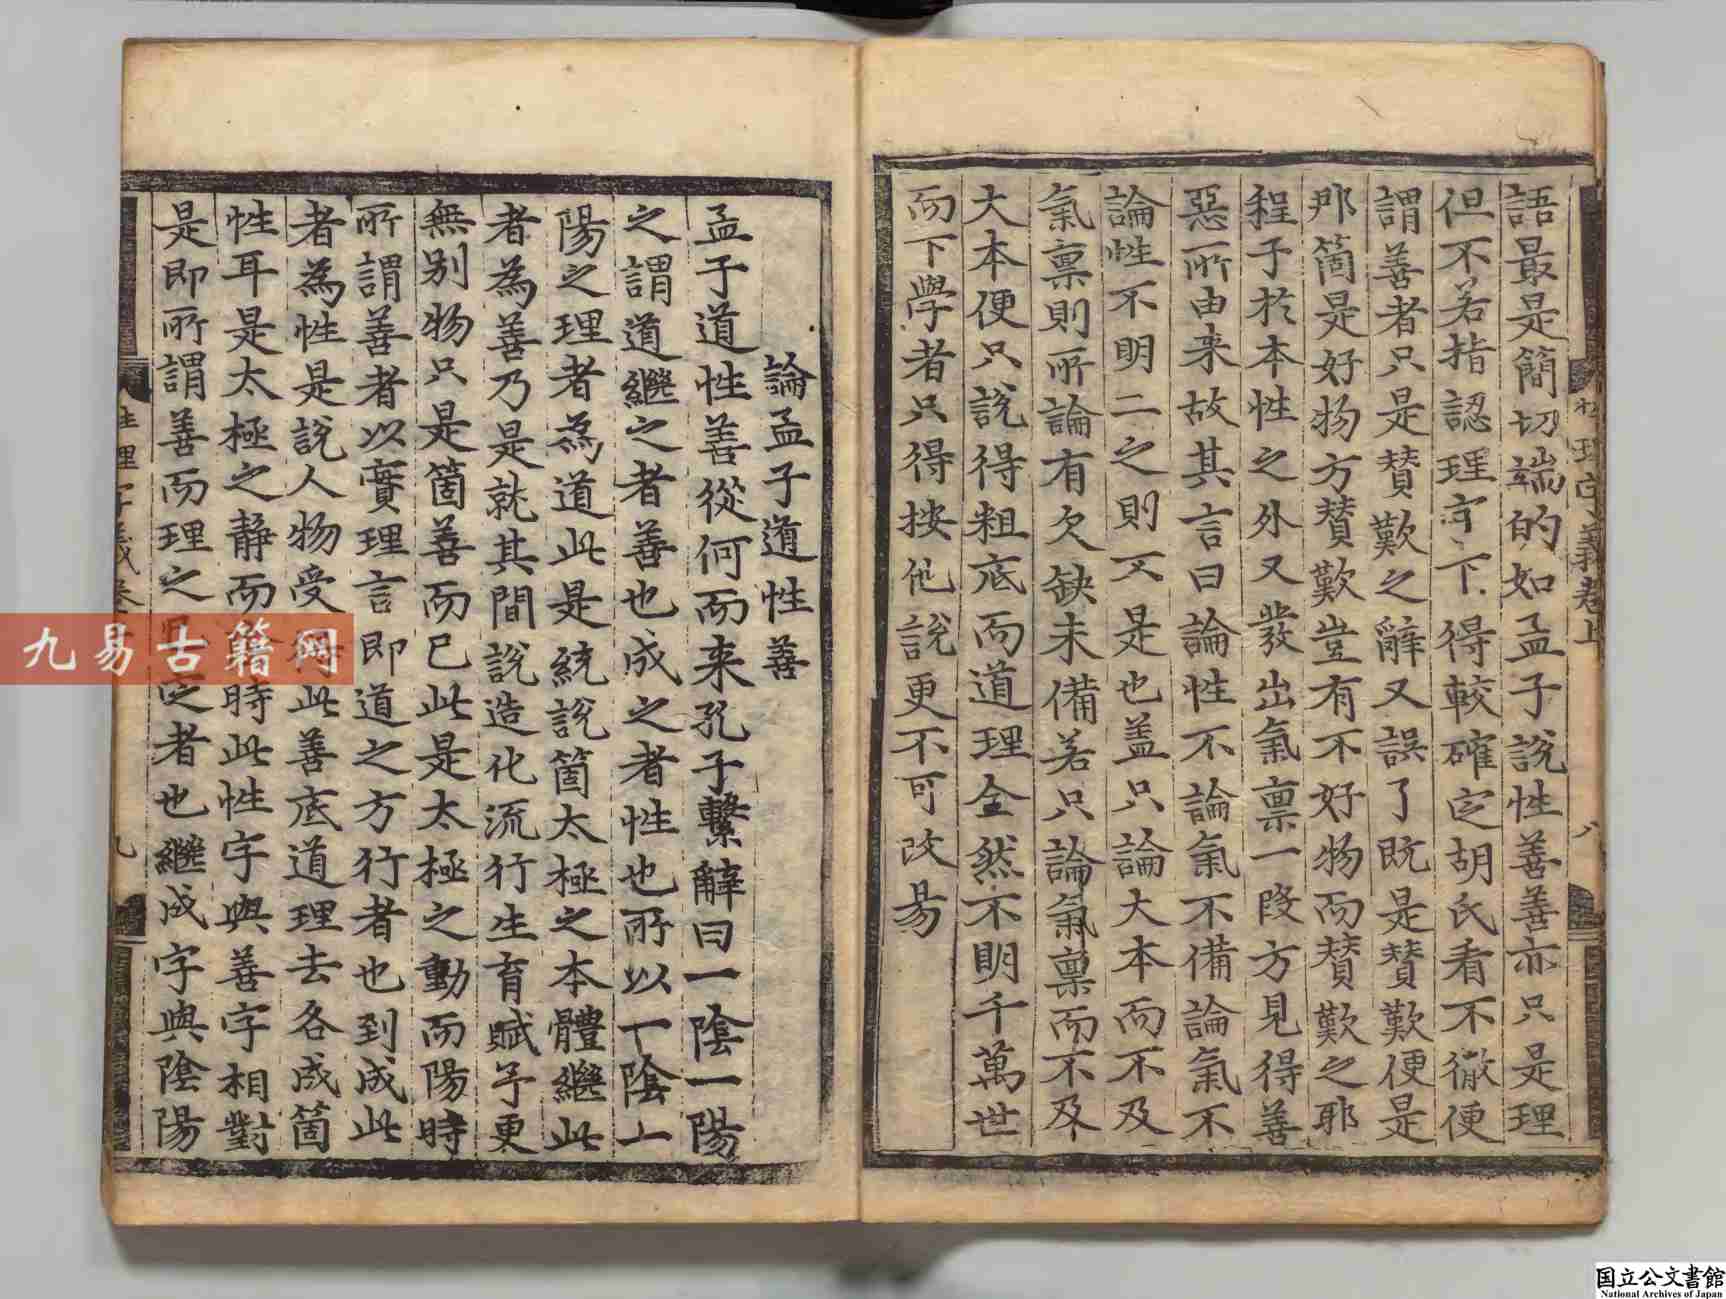 語最是簡切端的如孟子說性善善亦只是理
但不若指認理字下得較確定胡氏看不徹便
謂善者只是賛歎之辭又誤了既是賛歎便是
那箇是好物方賛歎豈有不好物而賛歎之耶
程子於本性之外又發出氣禀一段方見得善
惡所由来故其言曰論性不論氣不備論氣不
論性不明二之則不是也盖只論大本而不及
氣禀則所論有欠缺未備若只論氣禀而不及
大本便只說得粗底而道理全然不明千萬世
而下學者只得按他說更不可改易
性理字義卷上
八
論孟子道性善
孟子道性善從何而来孔子繫辭曰一陰一陽
之謂道繼之者善也成之者性也所以一陰一
陽之理者為道此是統說箇太極之本體繼此
者為善乃是就其間說造化流行生育賦予更
無別物只是箇善而已此是太極之動而陽時
所謂善者以實理言即道之方行者也到成此
者為性是說人物受得此善底道理去各成箇
性耳是太極之静而陰時此性字與善字相對
是即所謂善而理之已定者也繼成字與陰陽
性理字義卷
九
九易古籍网
国立公文書館
National Archives of Japan